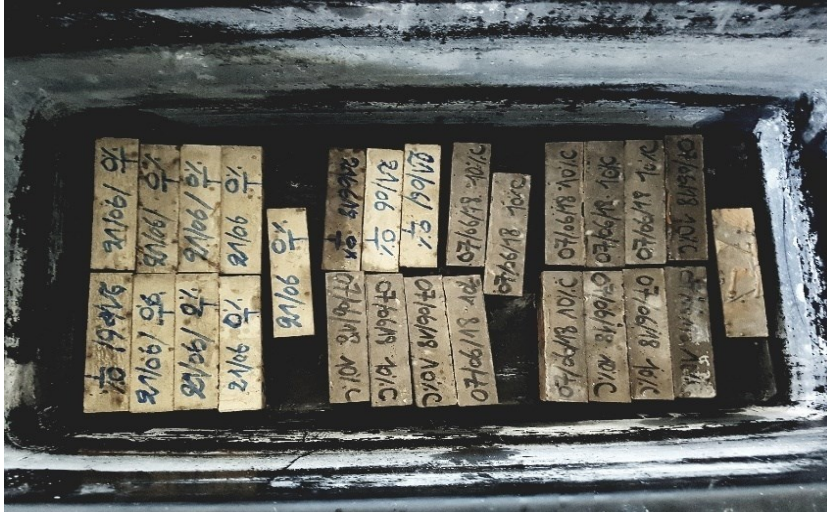 21/06/ 0% T
21/06/ 0% T
21/06/ 0% T
21/06 0% T
21/06 0% T
21/06/18 0% T
21/06 0% T
21/06/ 0% T
07/06/18 10% C
07/06/18 10% C
07/06/18 10% C
07/06/18 10% C
07/06/18 10% C
07/06/18 10% C
0% T
21/06/ 0%
21/06/ 0% T
21/06 0% T
07/06/18 10% C
07/06/18 10% C
07/06/18 10% C
07/06/18
07/06/18 10% C
07/06/18 10% C
07/06/18 10% C